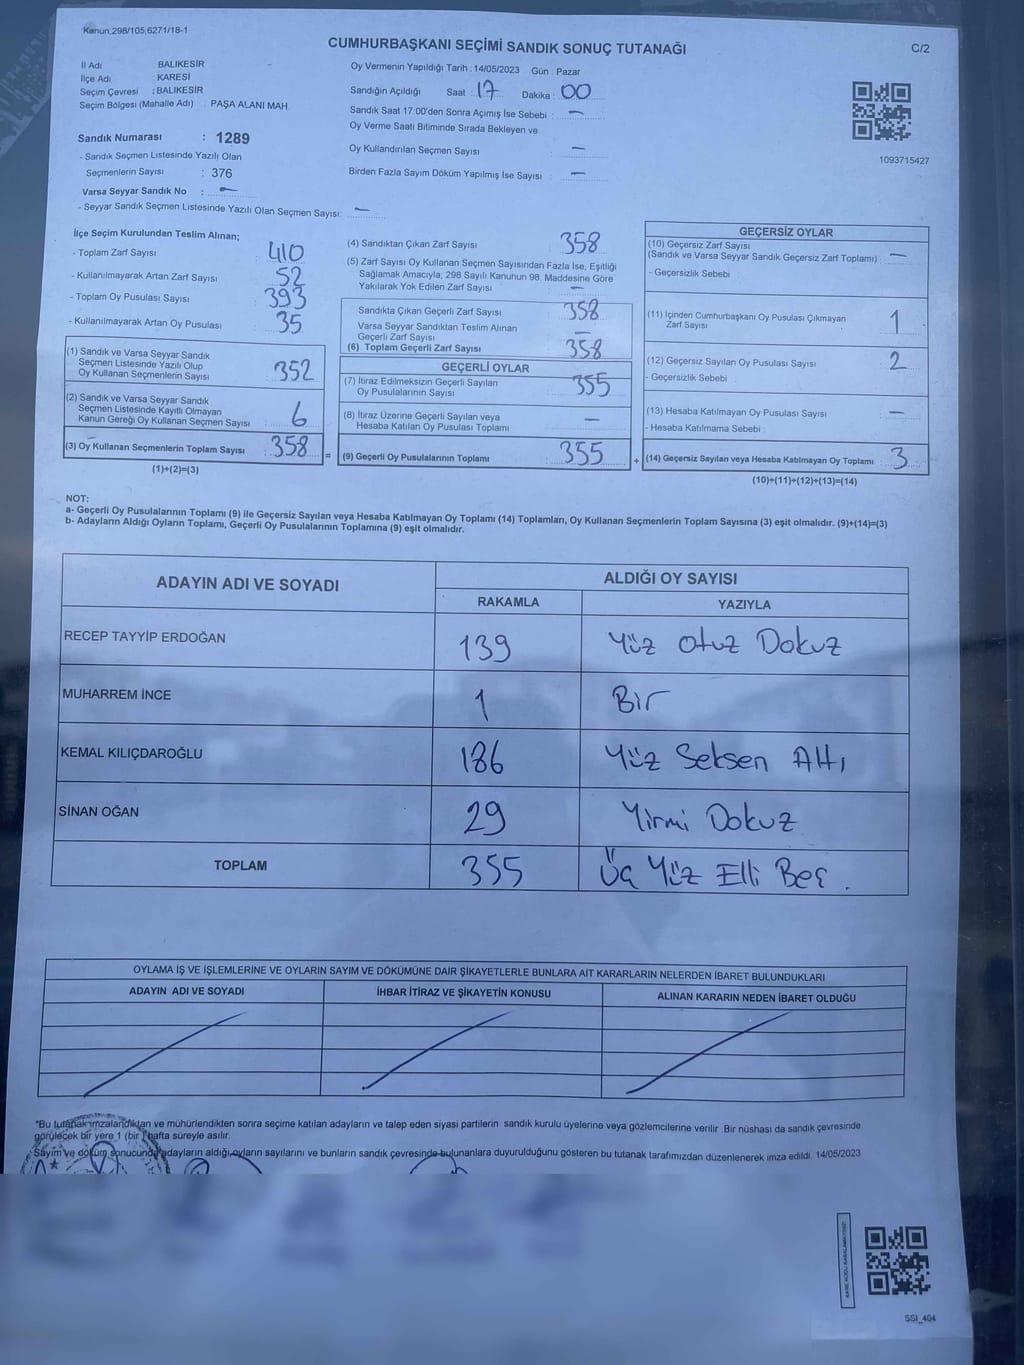 Kanun,298/105,6271/18-1
CUMHURBAŞKANI SEÇİMİ SANDIK SONUÇ TUTANAĞI
C/2
İl Adı BALIKESİR
İlçe Adı KARESİ
Seçim Çevresi : BALIKESİR
Seçim Bölgesi (Mahalle Adı) PAŞA ALANI MAH.
Oy Vermenin Yapıldığı Tarih : 14/05/2023 Gün : Pazar
Sandığın Açıldığı Saat : 17 Dakika : 00
Sandık Saat 17:00'den Sonra Açımış İse Sebebi : —
Oy Verme Saati Bitiminde Sırada Bekleyen ve
Oy Kullandırılan Seçmen Sayısı : —
Birden Fazla Sayım Döküm Yapılmış İse Sayısı : —
1093715427
Sandık Numarası : 1289
- Sandık Seçmen Listesinde Yazılı Olan
Seçmenlerin Sayısı : 376
Varsa Seyyar Sandık No : —
- Seyyar Sandık Seçmen Listesinde Yazılı Olan Seçmen Sayısı: —
İlçe Seçim Kurulundan Teslim Alınan;
- Toplam Zarf Sayısı 410
- Kullanılmayarak Artan Zarf Sayısı 52
- Toplam Oy Pusulası Sayısı 393
- Kullanılmayarak Artan Oy Pusulası 35
(1) Sandık ve Varsa Seyyar Sandık
Seçmen Listesinde Yazılı Olup
Oy Kullanan Seçmenlerin Sayısı 352
(2) Sandık ve Varsa Seyyar Sandık
Seçmen Listesinde Kayıtlı Olmayan
Kanun Gereği Oy Kullanan Seçmen Sayısı 6
(3) Oy Kullanan Seçmenlerin Toplam Sayısı 358
(1)+(2)=(3)
(4) Sandıktan Çıkan Zarf Sayısı 358
(5) Zarf Sayısı Oy Kullanan Seçmen Sayısından Fazla İse, Eşitliği
Sağlamak Amacıyla; 298 Sayılı Kanunun 98. Maddesine Göre
Yakılarak Yok Edilen Zarf Sayısı —
Sandıkta Çıkan Geçerli Zarf Sayısı 358
Varsa Seyyar Sandıktan Teslim Alınan
Geçerli Zarf Sayısı —
(6) Toplam Geçerli Zarf Sayısı 358
GEÇERLİ OYLAR
(7) İtiraz Edilmeksizin Geçerli Sayılan
Oy Pusulalarının Sayısı 355
(8) İtiraz Üzerine Geçerli Sayılan veya
Hesaba Katılan Oy Pusulası Toplamı —
= (9) Geçerli Oy Pusulalarının Toplamı 355
GEÇERSİZ OYLAR
(10) Geçersiz Zarf Sayısı
(Sandık ve Varsa Seyyar Sandık Geçersiz Zarf Toplamı) —
- Geçersizlik Sebebi
(11) İçinden Cumhurbaşkanı Oy Pusulası Çıkmayan
Zarf Sayısı 1
(12) Geçersiz Sayılan Oy Pusulası Sayısı 2
- Geçersizlik Sebebi :
(13) Hesaba Katılmayan Oy Pusulası Sayısı —
- Hesaba Katılmama Sebebi :
+ (14) Geçersiz Sayılan veya Hesaba Katılmayan Oy Toplamı 3
(10)+(11)+(12)+(13)=(14)
NOT:
a- Geçerli Oy Pusulalarının Toplamı (9) ile Geçersiz Sayılan veya Hesaba Katılmayan Oy Toplamı (14) Toplamları, Oy Kullanan Seçmenlerin Toplam Sayısına (3) eşit olmalıdır. (9)+(14)=(3)
b- Adayların Aldığı Oyların Toplamı, Geçerli Oy Pusulalarının Toplamına (9) eşit olmalıdır.
ADAYIN ADI VE SOYADI ALDIĞI OY SAYISI
RAKAMLA YAZIYLA
RECEP TAYYİP ERDOĞAN 139 Yüz Otuz Dokuz
MUHARREM İNCE 1 Bir
KEMAL KILIÇDAROĞLU 186 Yüz Seksen Altı
SİNAN OĞAN 29 Yirmi Dokuz
TOPLAM 355 Üç Yüz Elli Beş .
OYLAMA İŞ VE İŞLEMLERİNE VE OYLARIN SAYIM VE DÖKÜMÜNE DAİR ŞİKAYETLERLE BUNLARA AİT KARARLARIN NELERDEN İBARET BULUNDUKLARI
ADAYIN ADI VE SOYADI İHBAR İTİRAZ VE ŞİKAYETİN KONUSU ALINAN KARARIN NEDEN İBARET OLDUĞU
*Bu tutanak imzalandıktan ve mühürlendikten sonra seçime katılan adayların ve talep eden siyasi partilerin sandık kurulu üyelerine veya gözlemcilerine verilir .Bir nüshası da sandık çevresinde
görülecek bir yere 1 (bir ) hafta süreyle asılır.
Sayım ve döküm sonucunda adayların aldığı oyların sayılarını ve bunların sandık çevresinde bulunanlara duyurulduğunu gösteren bu tutanak tarafımızdan düzenlenerek imza edildi. 14/05/2023
SSI_404